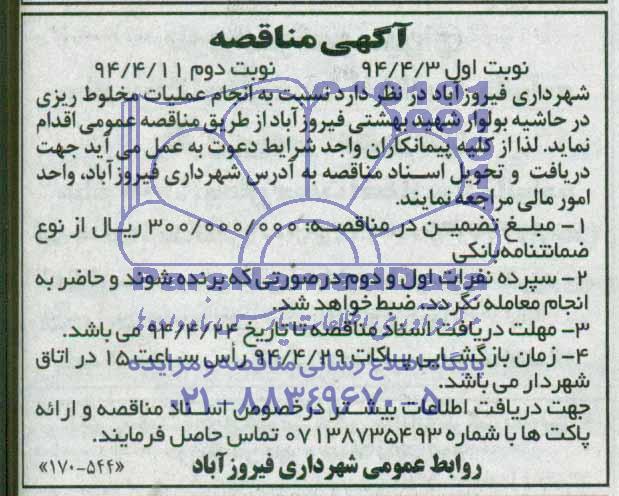 آگهی مناقصه
نوبت اول ۹۴/۴/۳ نوبت دوم ۹۴/۴/۱۱
شهرداری فیروزآباد در نظر دارد نسبت به انجام عملیات مخلوط ریزی
در حاشیه بولوار شهید بهشتی فیروزآباد از طریق مناقصه عمومی اقدام
نماید. لذا از کلیه پیمانکاران واجد شرایط دعوت به عمل می آید جهت
دریافت و تحویل اسناد مناقصه به آدرس شهرداری فیروزآباد، واحد
امور مالی مراجعه نمایند.
۱- مبلغ تضمین در مناقصه: ۳۰۰/۰۰۰/۰۰۰ ریال از نوع
ضمانتنامه بانکی
۲- سپرده نفرات اول و دوم در صورتی که برنده شوند و حاضر به
انجام معامله نگردد، ضبط خواهد شد.
۳- مهلت دریافت اسناد مناقصه تا تاریخ ۹۴/۴/۲۴ می باشد.
۴- زمان بازگشایی پاکات ۹۴/۴/۲۹ رأس ساعت ۱۵ در اتاق
شهردار می باشد.
جهت دریافت اطلاعات بیشتر درخصوص اسناد مناقصه و ارائه
پاکت ها با شماره ۰۷۱۳۸۷۳۵۴۹۳ تماس حاصل فرمایند.
روابط عمومی شهرداری فیروزآباد «۱۷۰-۵۴۴»
ParsNamadData
پایگاه اطلاع رسانی مناقصه و مزایده
۰۲۱-۸۸۳۴۹۶۷۰-۵